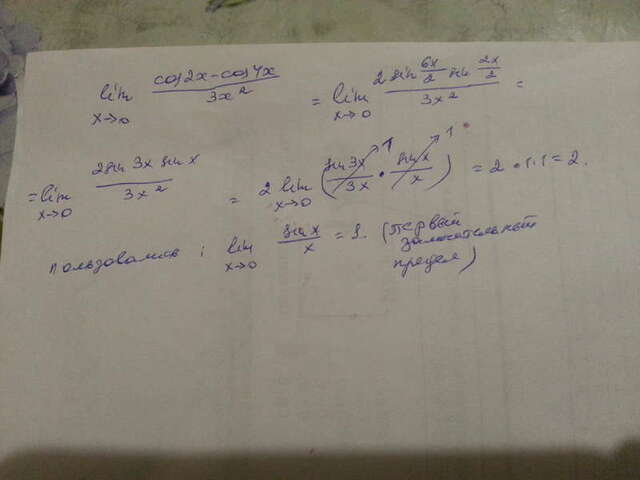 lim x→0 (cos2x-cos4x)/(3x²) = lim x→0 (2 sin 6x/2 sin 2x/2)/(3x²) =
= lim x→0 (2sin 3x sin x)/(3x²) = 2 lim x→0 (sin 3x/3x → 1 · sin x/x → 1) = 2 · 1 · 1 = 2.
пользовались : lim x→0 sin x/x = 1. (первый
замечательный
предел)